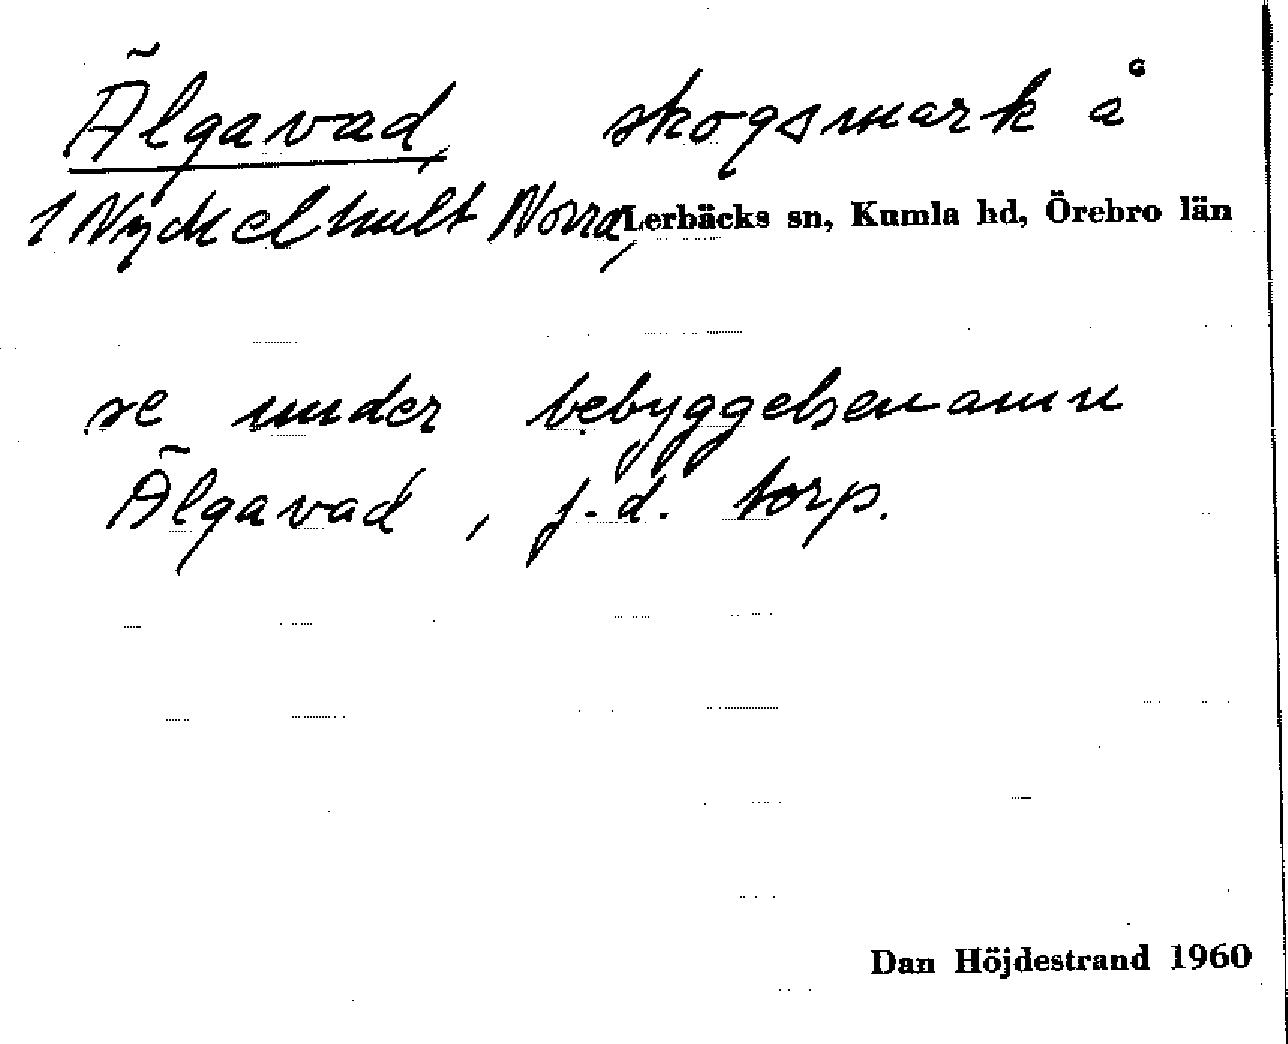 Älgavad, skogsmark å
1 Nyckelhult Norra, Lerbäcks sn, Kumla hd, Örebro län
se under bebyggelsenamn
Älgavad, f.d. torp.
Dan Höjdestrand 1960